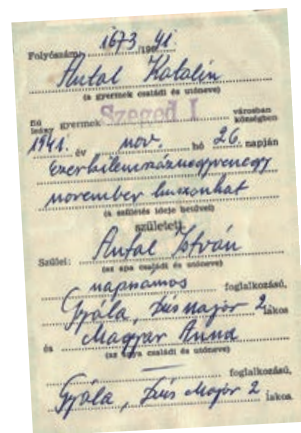 Folyószám: 1673/196 41.
Antal Katalin
(a gyermek családi és utóneve)
fiú
leány gyermek Szeged I városban
községben
1941. év nov. hó 26. napján
Ezerkilencszáznegyvenegy
november huszonhat
(a születés ideje betűvel)
született
Szülei: Antal István
(az apa családi és utóneve)
napszámos foglalkozású,
Gyála, Kis major 2 lakos
és Magyar Anna
(az anya családi és utóneve)
foglalkozású,
Gyála, Kis Major 2 lakos.